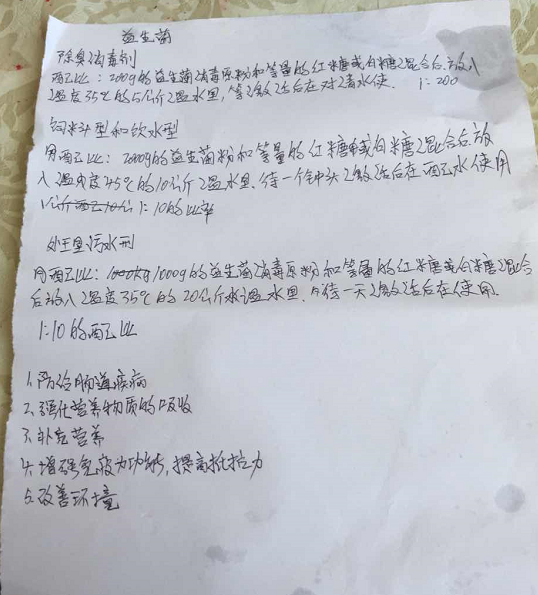 益生菌
除臭消毒剂
配比：200g的益生菌消毒原粉和等量的红糖或白糖混合后放入
温度35℃的5公斤温水里，等激活后在对清水使. 1:200
饲料型和饮水型
用配比：200g的益生菌粉和等量的红糖或白糖混合后放
入温度45℃的10公斤温水里.待一个钟头激活后在配水使用
1公斤配10公斤 1:10的比率
处理污水型
用配比：1000kg1000g的益生菌消毒原粉和等量的红糖或白糖混合
后放入温度35℃的20公斤水温水里.待一天激活后在使用.
1:10的配比
1.防治肠道疾病
2.强化营养物质的吸收
3.补充营养
4.增强免疫力功能,提高抵抗力
5.改善环境